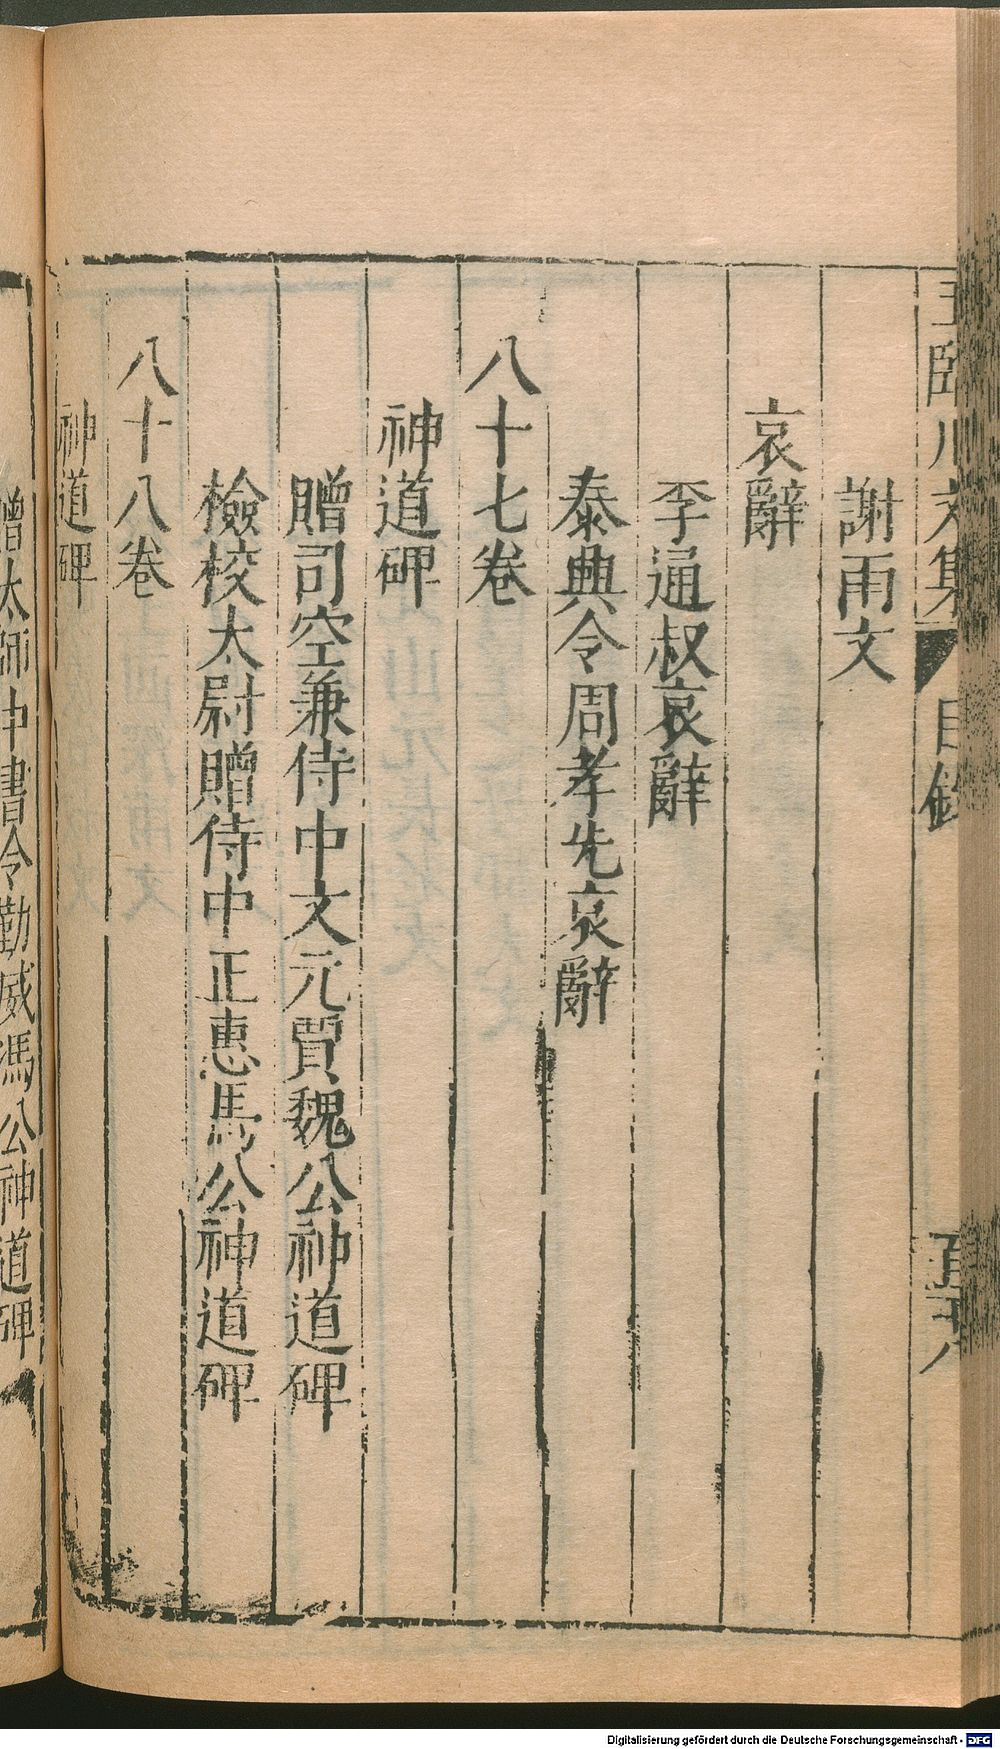 王臨川文集 目錄
謝雨文
哀辭
李通叔哀辭
泰興令周孝先哀辭
八十七卷
神道碑
贈司空兼侍中文元賈魏公神道碑
檢校太尉贈侍中正惠馬公神道碑
八十八卷
神道碑
贈太師中書令勤威馮公神道碑
Digitalisierung gefördert durch die Deutsche Forschungsgemeinschaft - DFG